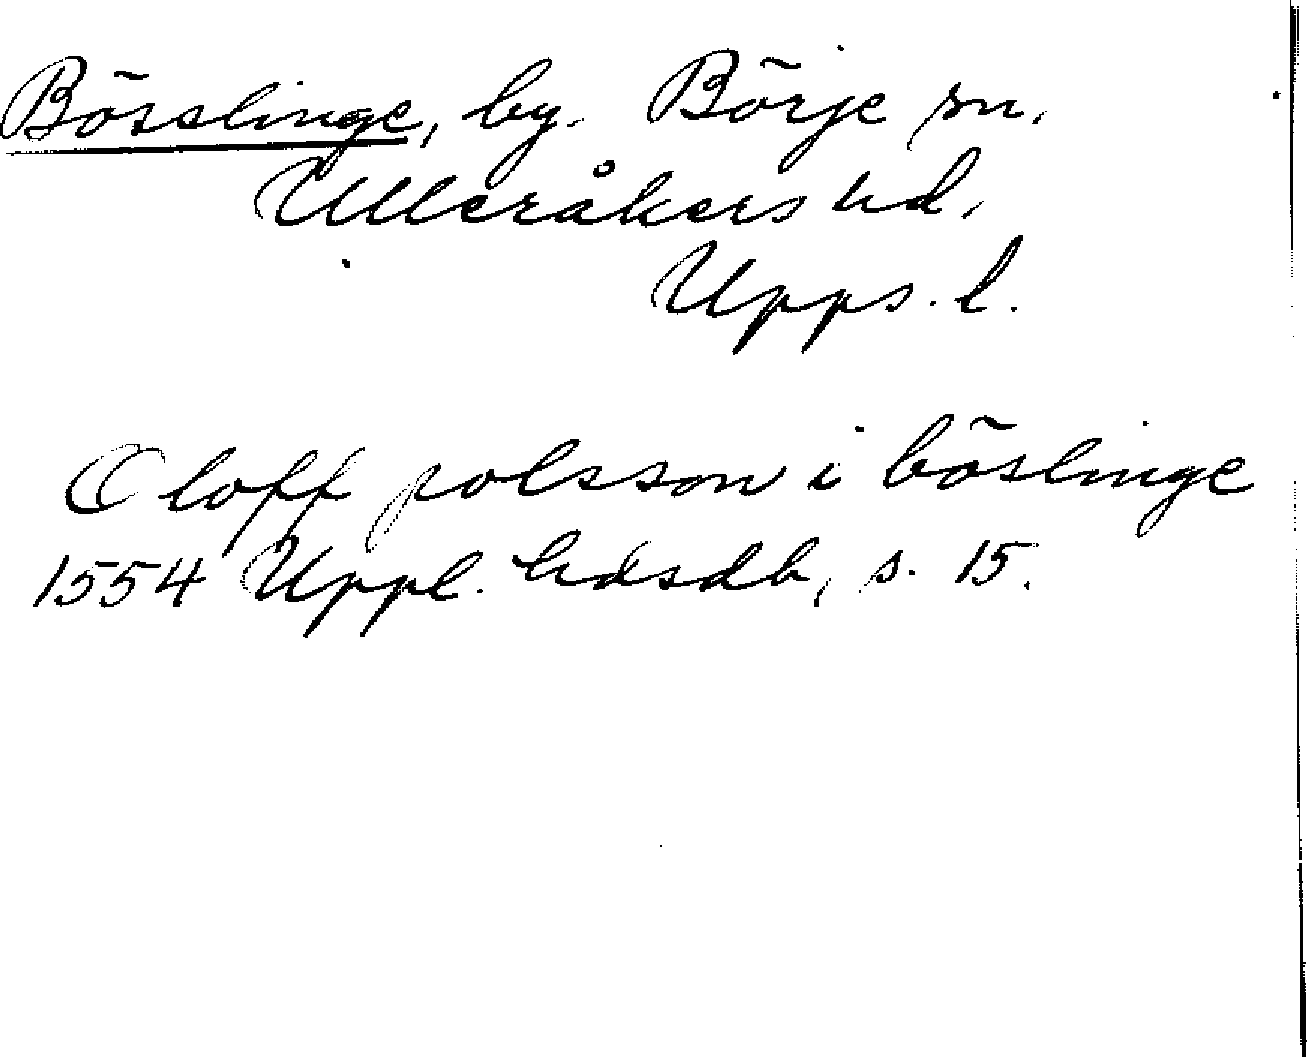 Bösslinge, by. Börje sn.
Ulleråkers hd.
Upps. l.
Oloff polsson i böslinge
1554 Uppl. hdsdb, s. 15.